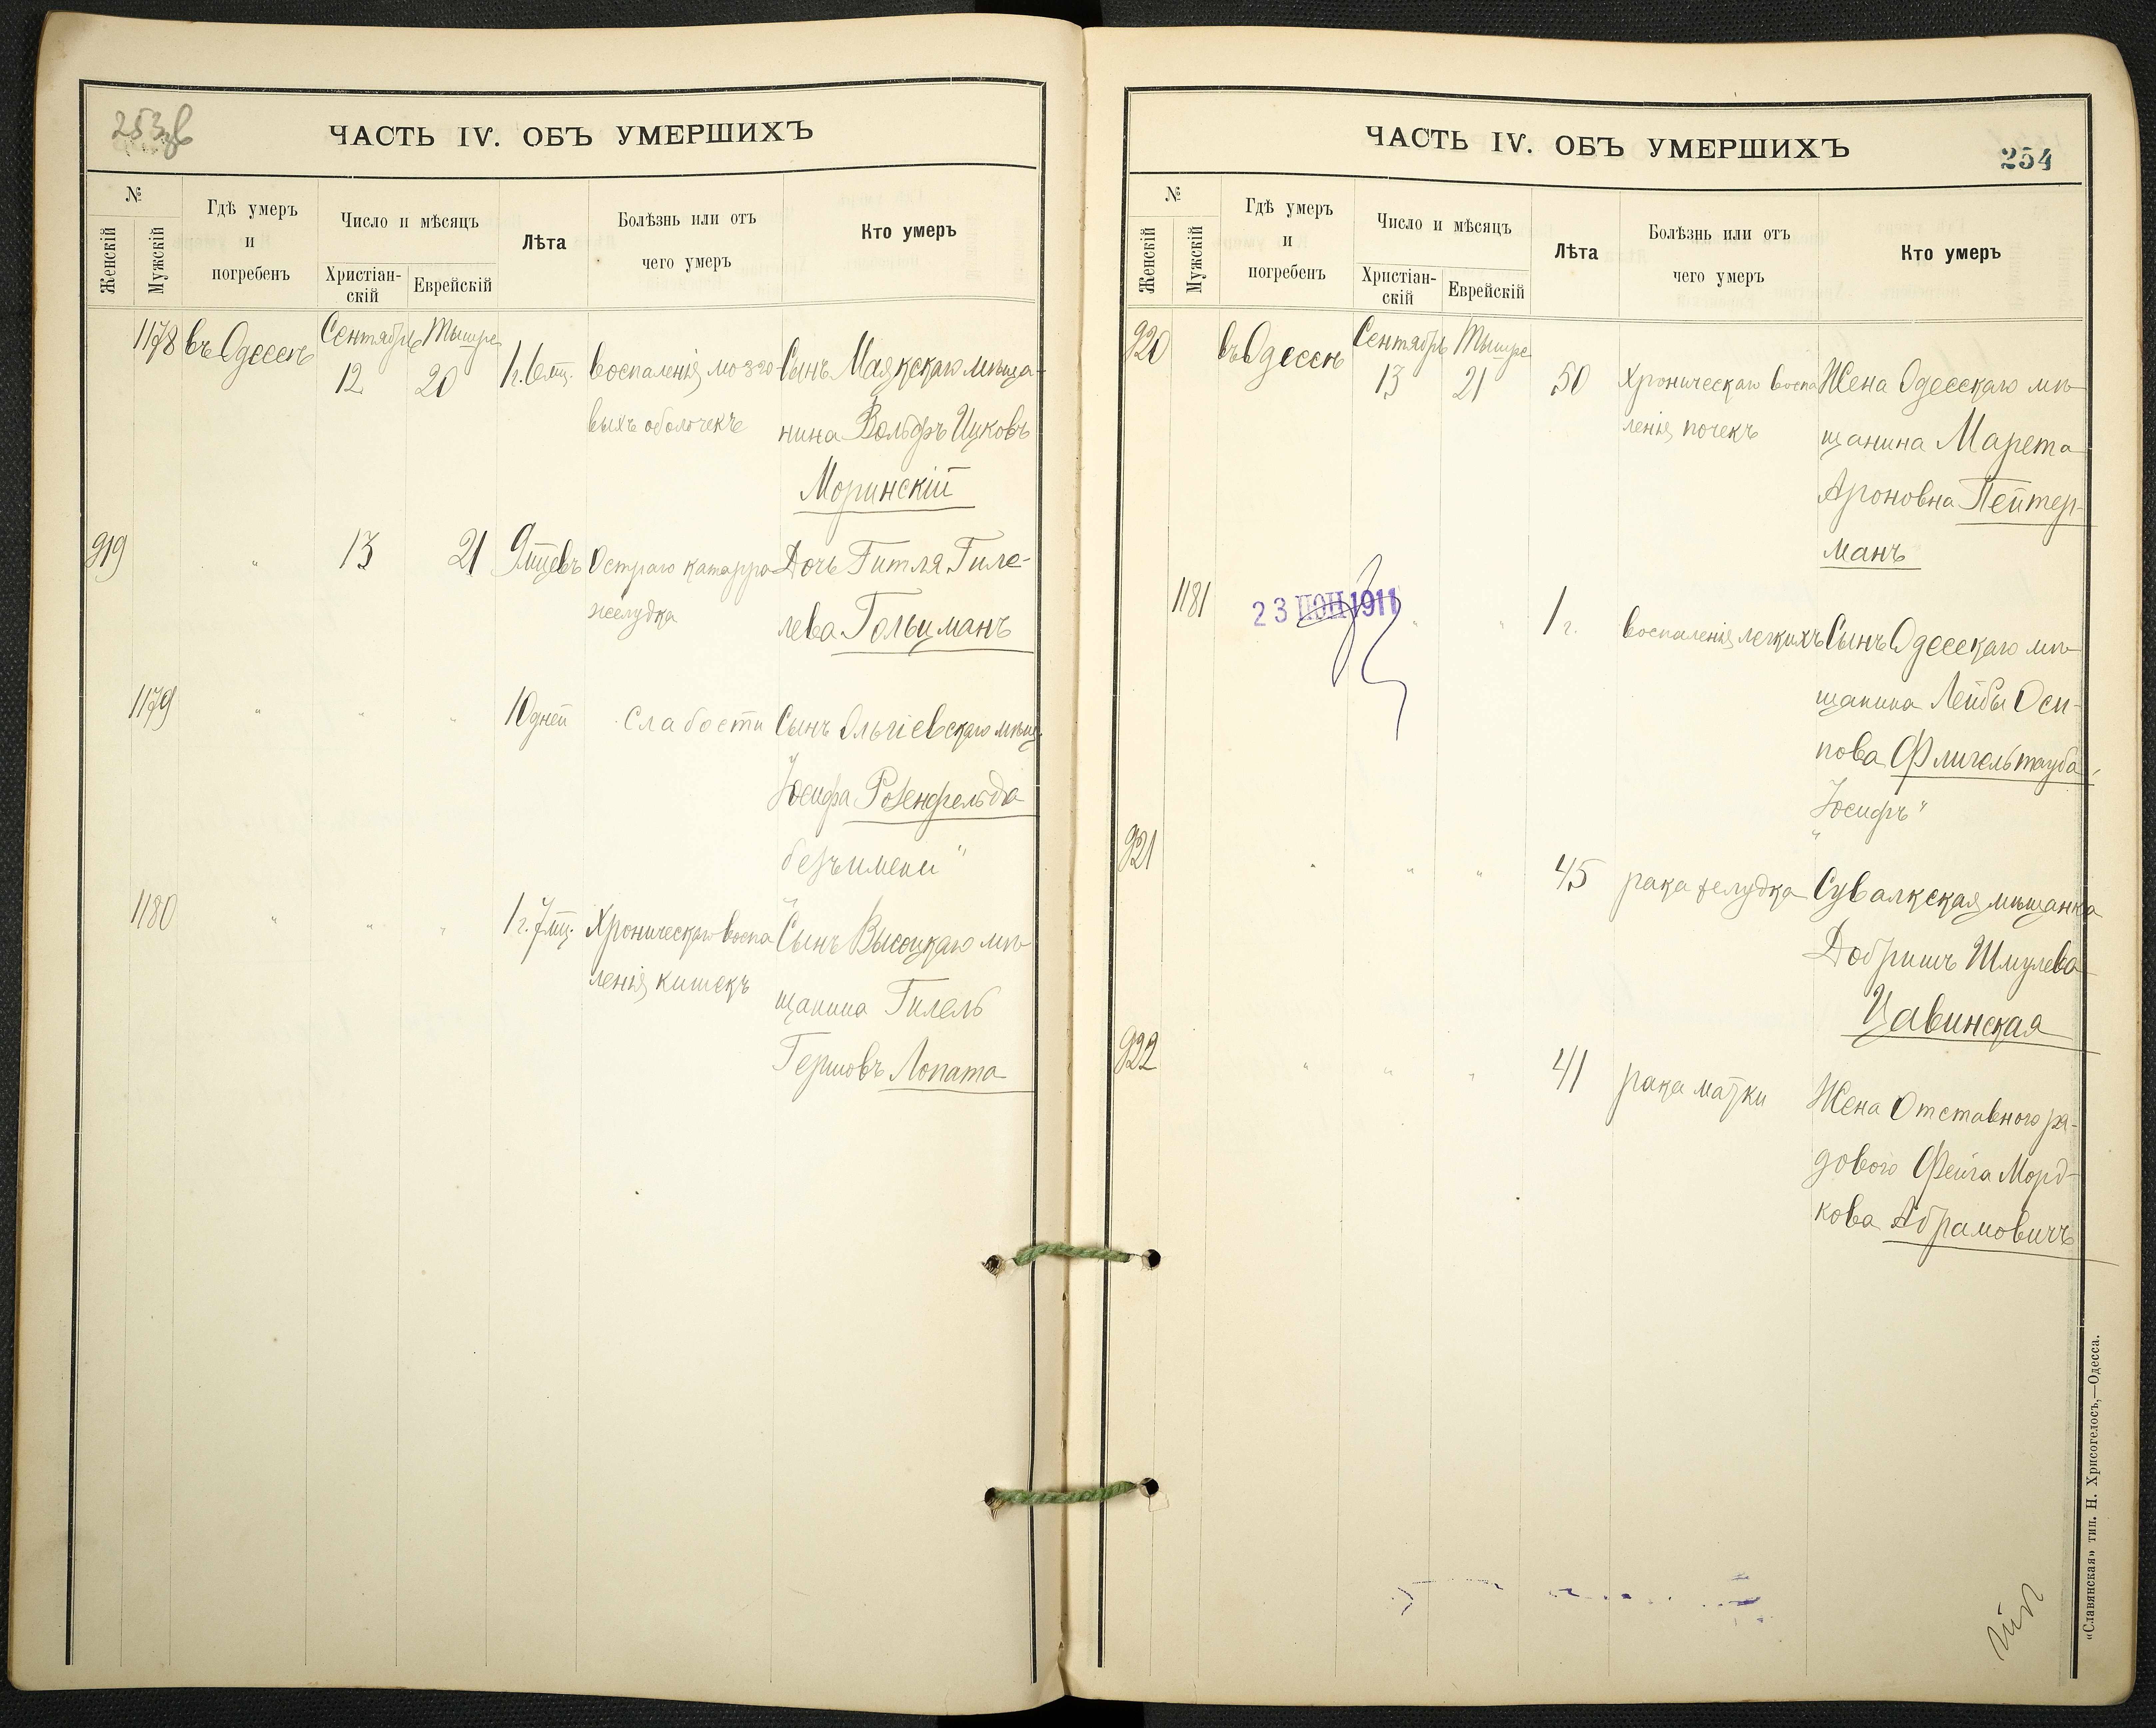 253 об
ЧАСТЬ IV. ОБЪ УМЕРШИХЪ
№
Женскій
Мужскій
Гдѣ умеръ
и
погребенъ
Число и мѣсяцъ
Христіан-
скій
Еврейскій
Лѣта
Болѣзнь или отъ
чего умеръ
Кто умеръ
1178 въ Одессѣ Сентябрь 12 Тышре 20 1 г. 6 мц. воспаленія мозго- Сынъ Маякскаго мѣща-
выхъ оболочекъ нина Вольфъ Ицковъ
Моринскій
919 " 13 21 9 мцевъ Остраго катарра Дочь Гитля Гиле-
желудка лева Гольцманъ
1179 " " " 10 дней Слабости Сынъ Ольгіевскаго мѣщ.
Іосифа Розенфельда
безъимени"
1180 " " " 1 г. 7 мц. Хроническаго воспа Сынъ Высоцкаго мѣ-
ленія кишекъ щанина Гилель
Гершовъ Лопата
ЧАСТЬ IV. ОБЪ УМЕРШИХЪ
254
№
Женскій
Мужскій
Гдѣ умеръ
и
погребенъ
Число и мѣсяцъ
Христіан-
скій
Еврейскій
Лѣта
Болѣзнь или отъ
чего умеръ
Кто умеръ
920 въ Одессѣ Сентябрь 13 Тышре 21 50 Хроническаго воспа Жена Одесскаго мѣ-
ленія почекъ щанина Марета
Ароновна Пейтер-
манъ
1181 23 ІЮН 1911 " " 1 г. воспаленія легкихъ Сынъ Одесскаго мѣ-
щанина Лейбы Оси-
пова Флигельтауба,
"Іосифъ"
921 " " " 45 рака желудка Сувалкская мѣщанка
Добришъ Шмулева
Цавинская
922 " " " 41 рака матки Жена Отставного ря-
дового Фейга Морд-
кова Абрамовичъ
«Славянская» тип. Н. Хрисогелосъ,—Одесса.